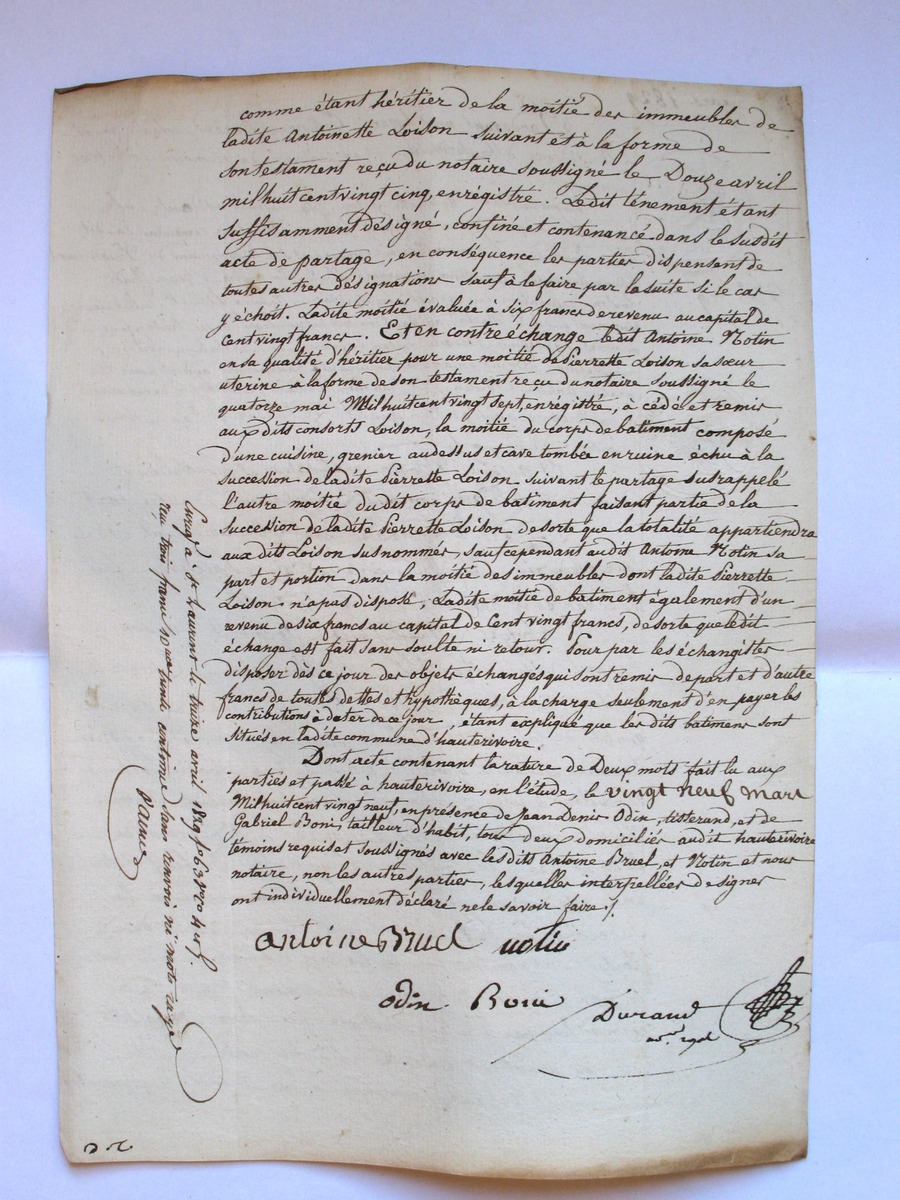 comme étant héritier de la moitié des immeubles de
ladite Antoinette Loison suivant et à la forme de
son testament reçu du notaire soussigné le Douze avril
mil huit cent vingt cinq, enrégistré. Ledit ténement étant
suffisamment désigné, confiné et contenancé dans le susdit
acte de partage, en conséquence les parties dispensent de
toutes autres désignations sauf à le faire par la suite si le cas
y échoit. Ladite moitié évaluée à six francs de revenu au capital de
cent vingt francs. Et en contre échange ledit Antoine Notin
en sa qualité d'héritier pour une moitié de Pierrette Loison sa sœur
uterine à la forme de son testament reçu du notaire soussigné le
quatorze mai Mil huit cent vingt sept, enregistré, à cédé et remis
aux dits consorts Loison, la moitié du corps de batiment composé
d'une cuisine, grenier au dessus et cave tombée en ruine échu à la
succession de ladite Pierrette Loison suivant le partage susrappelé
l'autre moitié dudit corps de batiment faisant partie de la
succession de ladite Pierrette Loison de sorte que la totalité appartiendra
aux dits Loison susnommés, sauf cependant audit Antoine Notin sa
part et portion dans la moitié des immeubles dont ladite Pierrette
Loison n'a pas disposé, Ladite moitié de batiment également d'un
revenu de six francs au capital de Cent vingt francs, de sorte que ledit
échange est fait sans soulte ni retour. Pour par les échangistes
disposer dès ce jour des objets échangés qui sont remis de part et d'autre
francs de toutes dettes et hypothèques, à la charge seulement d'en payer les
contributions à dater de ce jour, étant expliqué que les dits batimens sont
situés en ladite commune d'hauterivoire.
Dont acte contenant la rature de Deux mots fait lu aux
parties et passé à hauterivoire, en l'étude, le vingt neuf mars
Mil huit cent vingt neuf, en présence de Jean Denis Odin, tisserand, et de
Gabriel Boni, tailleur d'habit, tous deux domiciliés audit hauterivoire
témoins requis et soussignés avec les dits Antoine Bruel, et Notin et nous
notaire, non les autres parties, lesquelles interpellées de signer
ont individuellement déclaré ne le savoir faire./.
Antoine Bruel notin
odin Boni
Durand
Enregé à St Laurent le treize avril 1829 fo 63 Vo Co 4 et 5.
reçu trois francs 10me trente centimes dans renvoi ni mots rayés